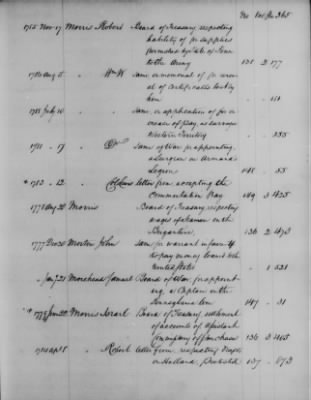 No Vol Pa 365
1785 Nov 17 Morris Robert Board of Treasury respecting
liability of for supplies
furnished by State of
to the Army 151 2 177
1780 Aug 5 " Wm W Same on memorial of for renewal
of Certificates lost by
him
1788 July 10 " Same on application of for increase
of pay, as surveyor
Western Territory 535
1781 " 17 " Dr Same of War for appointing
a Surgeon in Armand's
Legion 148 55
1783 " 12 " letter from accepting the
Commutation Pay 149 3 425
1778 Aug 28 Morris Board of Treasury respecting
wages of seamen on the
Brigantine 136 2 493
1777 Dec 20 Morton John Same for warrant in favor of
to pay money loaned the
United States 1 531
" Jany 21 Morehead Samuel Board of War, for appointing
a Captain in the
Pennsylvania line 147 31
1779 Jany 28 Morris Israel Board of Treasury settlement
of accounts of
company of for 136 3 465
1784 Apl 8 " Robert letter from respecting Drafts
on Holland, protested 137 673